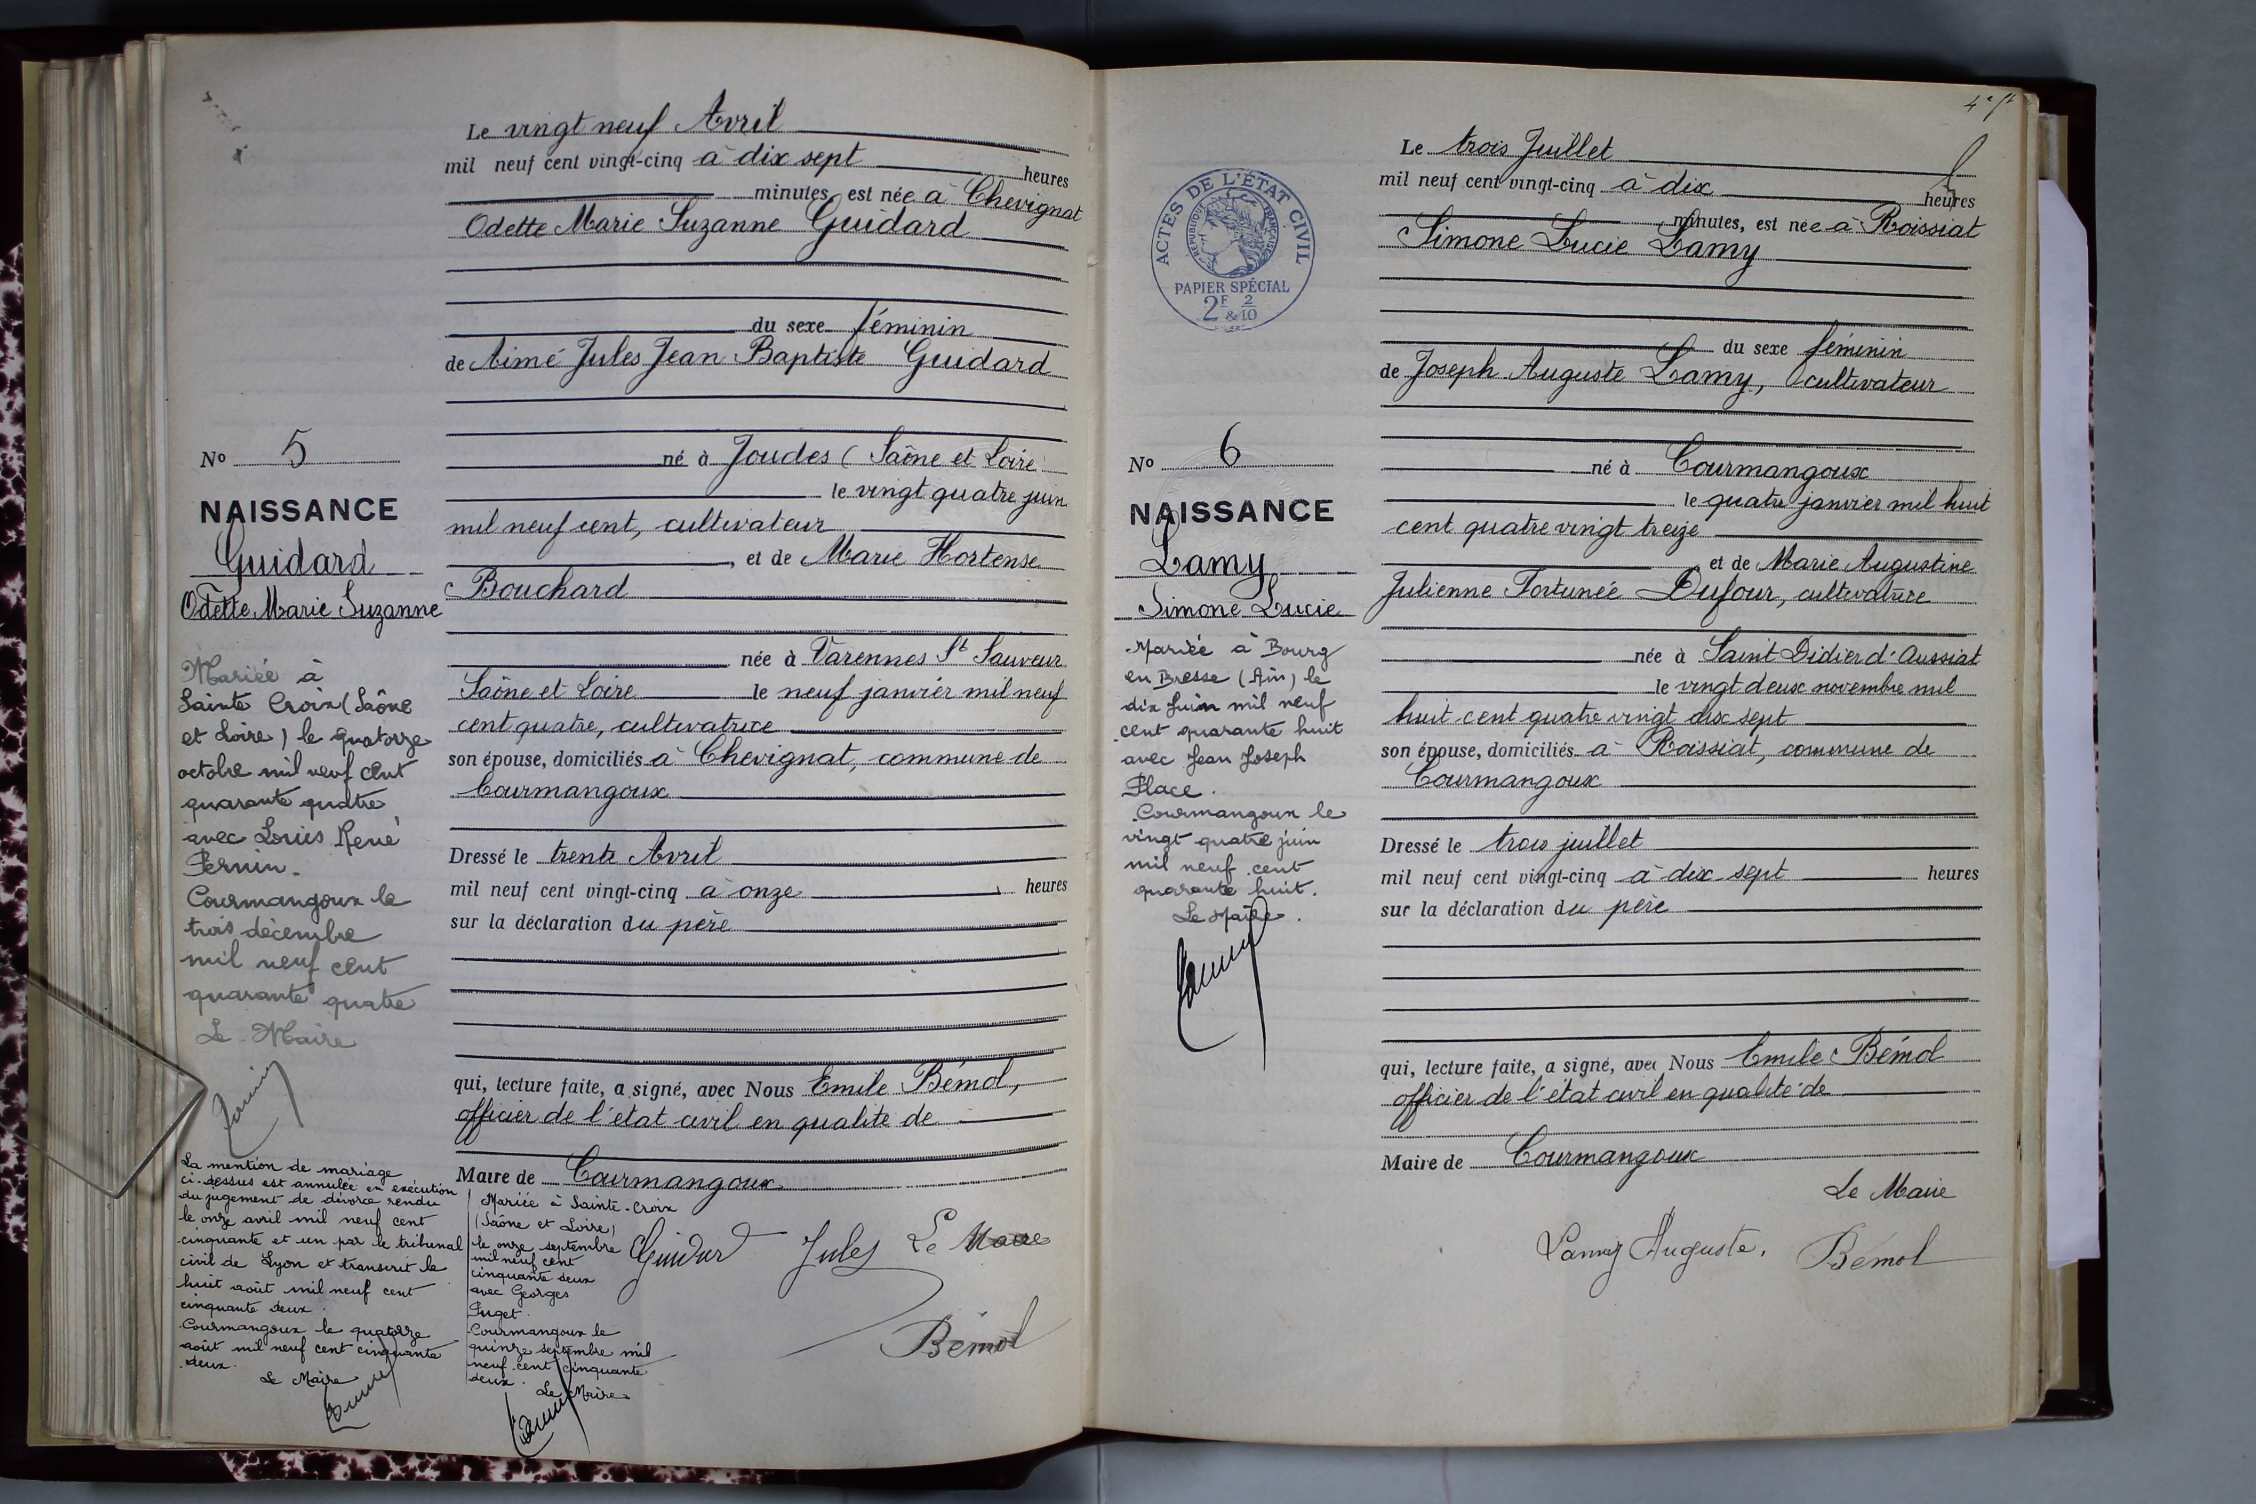 Le vingt neuf Avril
mil neuf cent vingt-cinq à dix sept heures
minutes est née à Chevignat
Odette Marie Suzanne Guidard
du sexe féminin
de Aimé Jules Jean Baptiste Guidard
né à Joudes (Saône et Loire
le vingt quatre juin
mil neuf cent, cultivateur
, et de Marie Hortense
Bouchard
née à Varennes St Sauveur
Saône et Loire le neuf janvier mil neuf
cent quatre, cultivatrice
son épouse, domiciliés à Chevignat, commune de
Courmangoux
Dressé le trente Avril
mil neuf cent vingt-cinq à onze heures
sur la déclaration du père
qui, lecture faite, a signé, avec Nous Emile Bémol,
officier de l'état civil en qualité de
Maire de Courmangoux
Guidard Jules Le Maire
Bémol
No 5
NAISSANCE
Guidard
Odette Marie Suzanne
Mariée à
Sainte Croix (Saône
et Loire) le quatorze
octobre mil neuf cent
quarante quatre
avec Louis René
Pernin.
Courmangoux le
trois décembre
mil neuf cent
quarante quatre
Le Maire
La mention de mariage
ci-dessus est annulée en exécution
du jugement de divorce rendu
le onze avril mil neuf cent
cinquante et un par le tribunal
civil de Lyon et transcrit le
huit août mil neuf cent
cinquante deux.
Courmangoux le quatorze
août mil neuf cent cinquante
deux.
Le Maire
Mariée à Sainte-Croix
(Saône et Loire)
le onze septembre
mil neuf cent
cinquante deux
avec Georges
Puget.
Courmangoux le
quinze septembre mil
neuf cent cinquante
deux.
Le Maire
4e ft
ACTES DE L'ÉTAT CIVIL
RÉPUBLIQUE FRANÇAISE
PAPIER SPÉCIAL
2F & 2/10
Le trois Juillet
mil neuf cent vingt-cinq à dix heures
minutes, est née à Roissiat
Simone Lucie Lamy
du sexe féminin
de Joseph Auguste Lamy, cultivateur
né à Courmangoux
le quatre janvier mil huit
cent quatre vingt treize
et de Marie Augustine
Julienne Fortunée Dufour, cultivatrice
née à Saint Didier d'Aussiat
le vingt deux novembre mil
huit cent quatre vingt dix sept
son épouse, domiciliés à Roissiat, commune de
Courmangoux
Dressé le trois juillet
mil neuf cent vingt-cinq à dix sept heures
sur la déclaration du père
qui, lecture faite, a signé, avec Nous Emile Bémol
officier de l'état civil en qualité de
Maire de Courmangoux
Le Maire
Lamy Auguste. Bémol
No 6
NAISSANCE
Lamy
Simone Lucie
Mariée à Bourg
en Bresse (Ain) le
dix Juin mil neuf
cent quarante huit
avec Jean Joseph
Place.
Courmangoux le
vingt quatre juin
mil neuf cent
quarante huit.
Le Maire.
Lamy